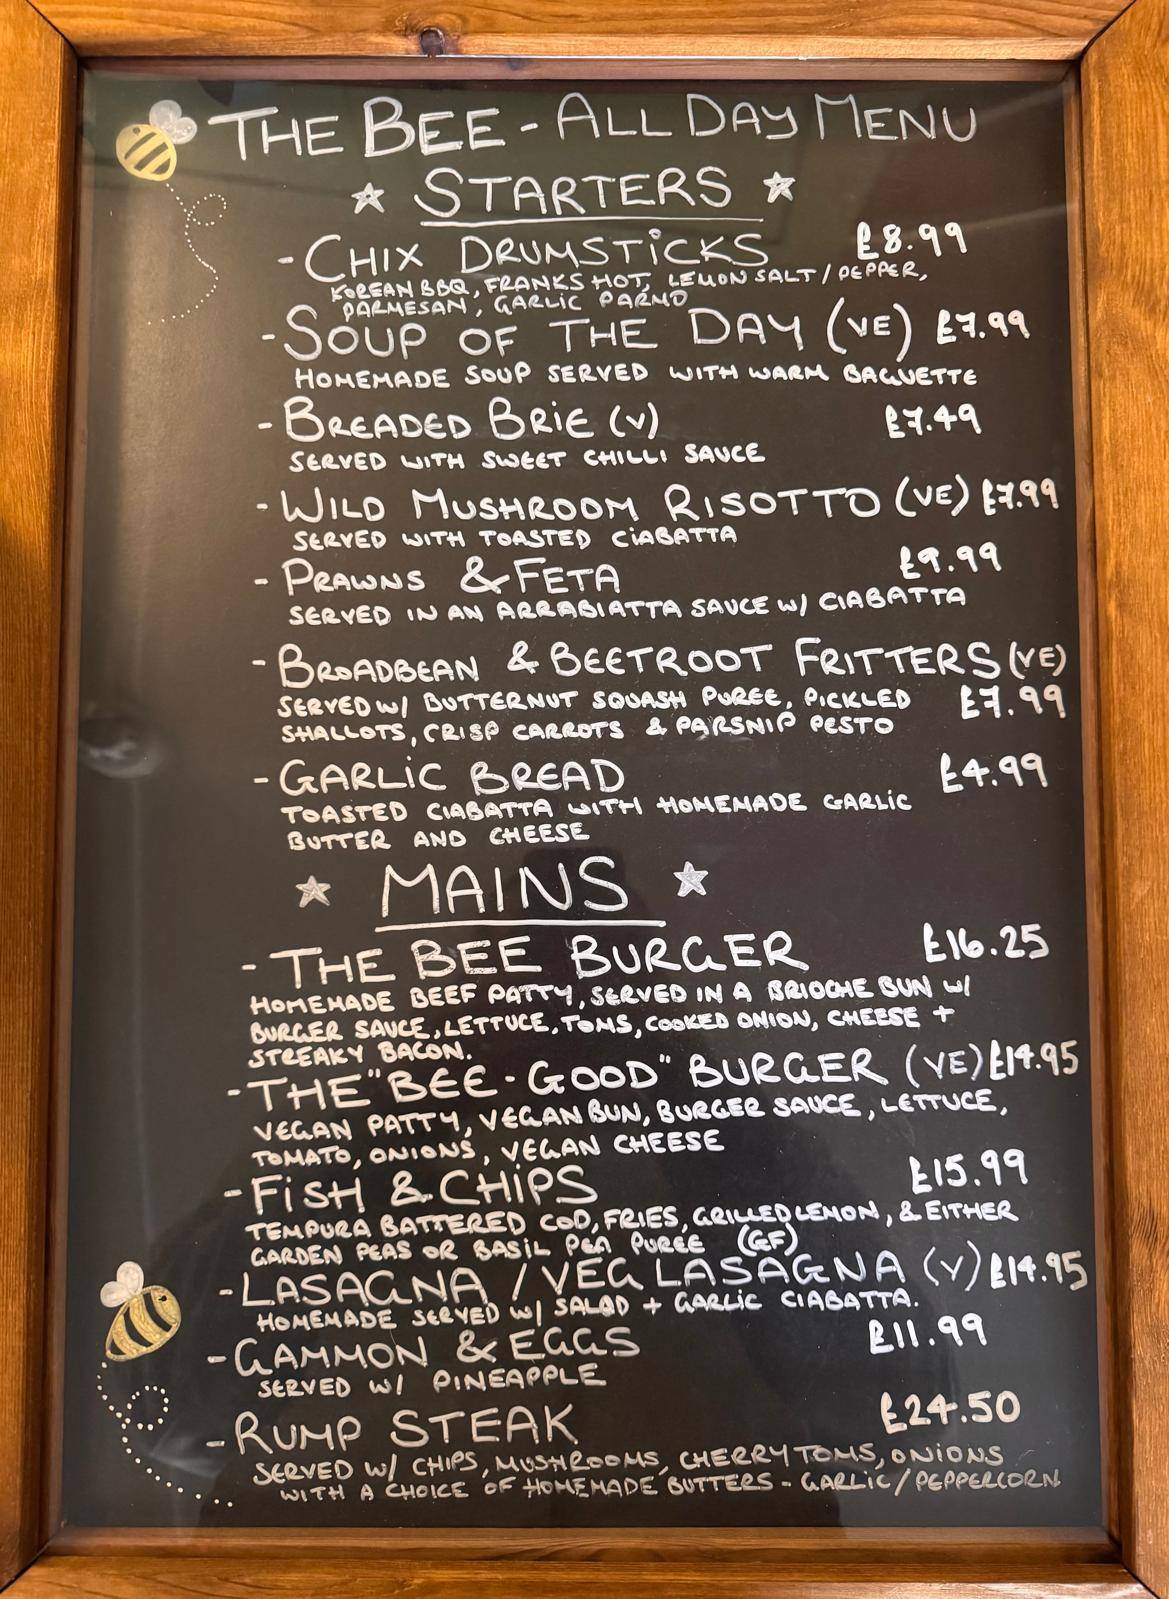 THE BEE - ALL DAY MENU
STARTERS
- CHIX DRUMSTICKS £8.99
KOREAN BBQ, FRANKS HOT, LEMON SALT / PEPPER,
PARMESAN, GARLIC PARMO
- SOUP OF THE DAY (VE) £7.99
HOMEMADE SOUP SERVED WITH WARM BAGUETTE
- BREADED BRIE (V) £7.49
SERVED WITH SWEET CHILLI SAUCE
- WILD MUSHROOM RISOTTO (VE) £7.99
SERVED WITH TOASTED CIABATTA
- PRAWNS & FETA £9.99
SERVED IN AN ARRABIATTA SAUCE W/ CIABATTA
- BROADBEAN & BEETROOT FRITTERS (VE)
SERVED W/ BUTTERNUT SQUASH PUREE, PICKLED £7.99
SHALLOTS, CRISP CARROTS & PARSNIP PESTO
- GARLIC BREAD £4.99
TOASTED CIABATTA WITH HOMEMADE GARLIC
BUTTER AND CHEESE
MAINS
- THE BEE BURGER £16.25
HOMEMADE BEEF PATTY, SERVED IN A BRIOCHE BUN W/
BURGER SAUCE, LETTUCE, TOMS, COOKED ONION, CHEESE +
STREAKY BACON.
- THE "BEE-GOOD" BURGER (VE) £14.95
VEGAN PATTY, VEGAN BUN, BURGER SAUCE, LETTUCE,
TOMATO, ONIONS, VEGAN CHEESE
- FISH & CHIPS £15.99
TEMPURA BATTERED COD, FRIES, GRILLED LEMON, & EITHER
GARDEN PEAS OR BASIL PEA PUREE (GF)
- LASAGNA / VEG LASAGNA (V) £14.95
HOMEMADE SERVED W/ SALAD + GARLIC CIABATTA.
- GAMMON & EGGS £11.99
SERVED W/ PINEAPPLE
- RUMP STEAK £24.50
SERVED W/ CHIPS, MUSHROOMS, CHERRY TOMS, ONIONS
WITH A CHOICE OF HOMEMADE BUTTERS - GARLIC / PEPPERCORN